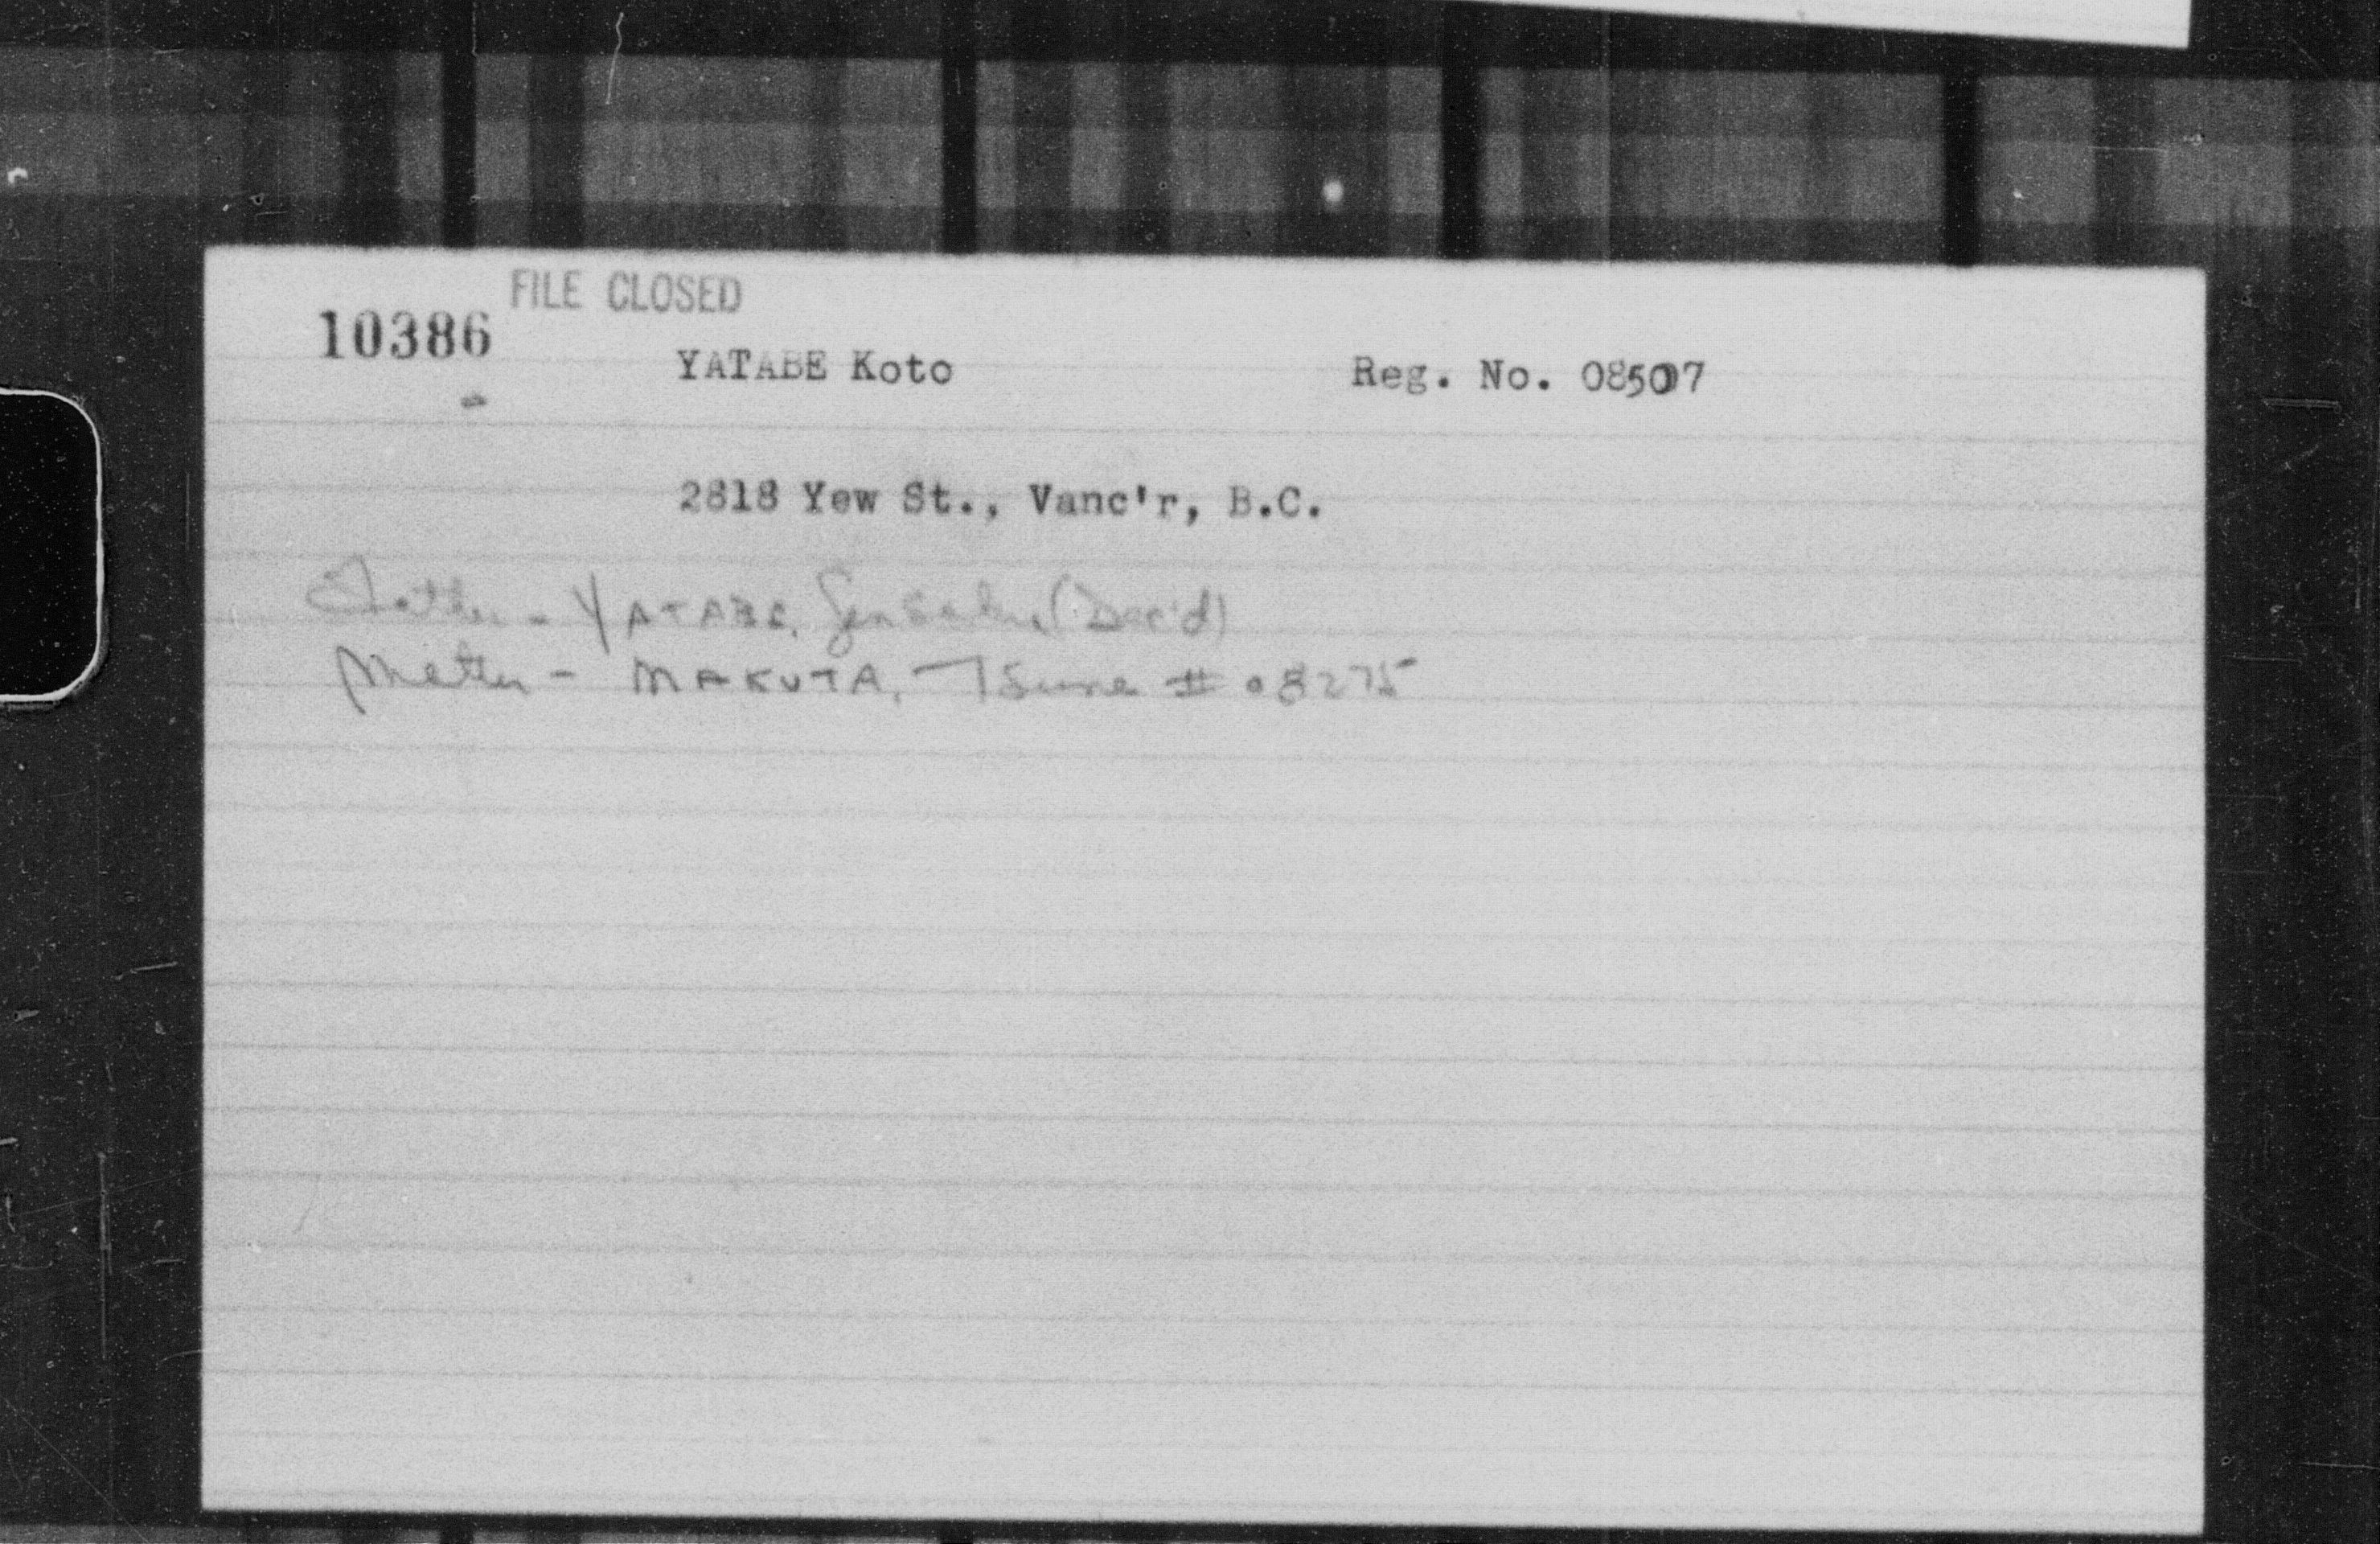 FILE CLOSED
10386
YATABE Koto Reg. No. 08507
2818 Yew St., Vanc'r, B.C.
Father - YATABE, (Dec'd)
Mother - MAKUTA, Tsune # 08275